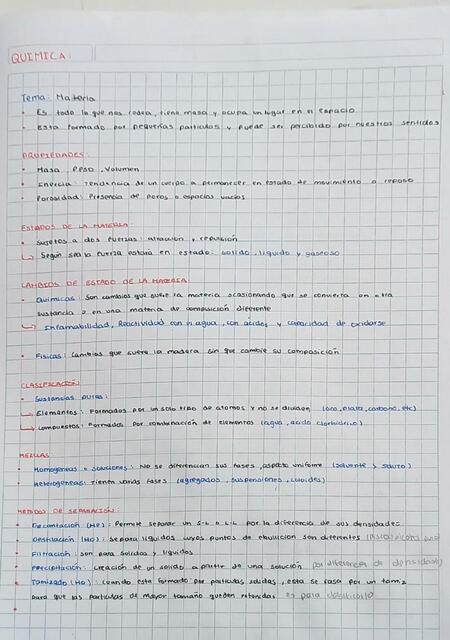 QUIMICA:
Tema: Materia
• Es todo lo que nos rodea, tiene masa y ocupa un lugar en el espacio
• Esta formado por pequeñas particulas y puede ser percibido por nuestros sentidos
PROPIEDADES:
• Masa, Peso, Volumen
• Inercia: Tendencia de un cuerpo a permanecer en estado de movimiento o reposo
• Porosidad: Presencia de poros o espacios vacios
ESTADOS DE LA MATERIA:
• Sujetos a dos fuerzas: atraccion y repulsion
↳ Según sea la fuerza estará en estado: solido, liquido y gaseoso
CAMBIOS DE ESTADO DE LA MATERIA:
• Quimicos: Son cambios que sufre la materia ocasionando que se convierta en otra
sustancia o en una materia de composición diferente
↳ Inflamabilidad, Reactividad con el agua, con acidos y capacidad de oxidarse
• Fisicos: Cambios que sufre la madera sin que cambie su composición
CLASIFICACIÓN
• Sustancias puras:
↳ Elementos: Formados por un solo tipo de atomos y no se dividen (oro, plata, carbono, etc)
↳ Compuestos: Formados por combinación de elementos (agua, acido clorhidrico)
MEZCLAS
• Homogeneas o soluciones: No se diferencian sus fases, aspecto uniforme (solvente y soluto)
• Heterogeneas: Tienen varias fases (agregados, suspensiones, coloides)
METODOS DE SEPARACIÓN:
• Decantación (He): Permite separar un S-L o L-L por la diferencia de sus densidades
• Destilación (Ho): Separa liquidos cuyos puntos de ebullicion son diferentes
• Filtración: son para solidos y liquidos
• Precipitación: creación de un solido a partir de una solución por diferencia de densidades
• Tamizado (Ho): Cuando esta formado por particulas solidas, esta se pasa por un tamiz
para que las particulas de mayor tamaño queden retenidas es para